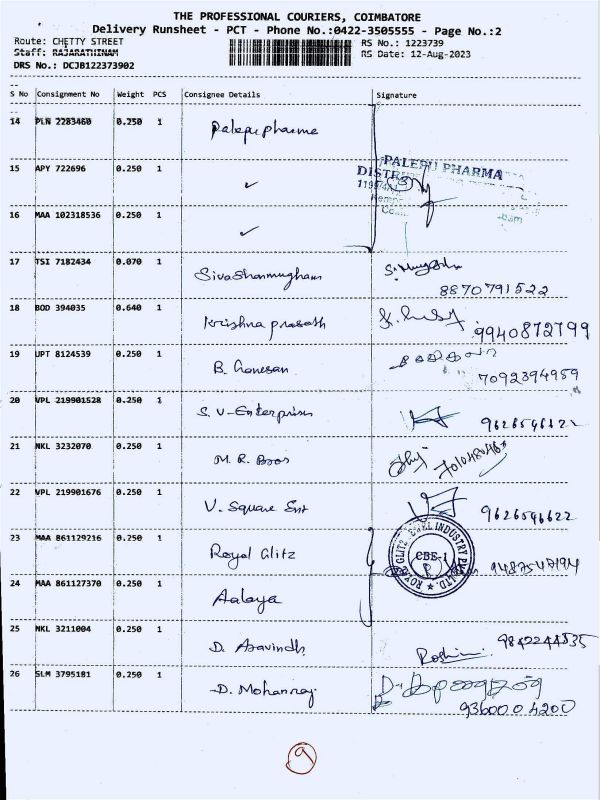 THE PROFESSIONAL COURIERS, COIMBATORE
Delivery Runsheet - PCT - Phone No.:0422-3505555 - Page No.:2
Route: CHETTY STREET RS No.: 1223739
Staff: RAJARATHINAM RS Date: 12-Aug-2023
DRS No.: DCJB122373902
S No Consignment No Weight PCS Consignee Details Signature
14 PLN 2283460 0.250 1 Palepu pharma
15 APY 722696 0.250 1 ✓
PALEPU PHARMA
16 MAA 102318536 0.250 1 ✓
17 TSI 7182434 0.070 1 Sivashanmugham
8870791522
18 BOD 394035 0.640 1 Krishna prasath
9940872799
19 UPT 8124539 0.250 1 B. Ganesan
7092394959
20 VPL 219901528 0.250 1 S. V-Enterprises
9626546622
21 NKL 3232070 0.250 1 M. R. Bros
22 VPL 219901676 0.250 1 V. Square Ent
9626546622
23 MAA 861129216 0.250 1 Royal Glitz
CBE-1
9487547194
24 MAA 861127370 0.250 1 Aalaya
25 NKL 3211004 0.250 1 D. Aravindh
Roshini 9842244835
26 SLM 3795181 0.250 1 D. Mohanraj
9360004200
9